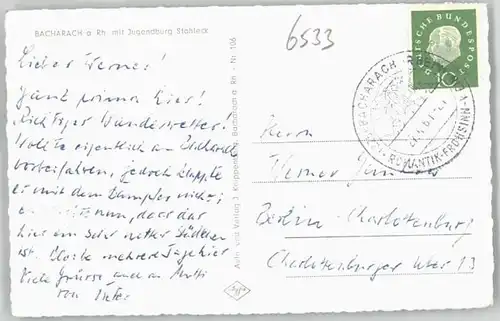 BACHARACH a. Rh. mit Jugendburg Stahleck
6533
Lieber Werner!
Ganz prima hier!
Richtiges Wanderwetter.
Wollte eigentlich an Bacharach
vorbeifahren, jedoch klappte
es mit dem Dampfer nicht;
nun, daß das
hier ein sehr nettes Städtchen
ist. Bleibe mehrere Tage hier
Viele Grüsse auch an Mutti
von
Auto- und Verlag J. Bacharach a. Rh. - Nr. 106
Agfa
DEUTSCHE BUNDESPOST
10
BACHARACH (RHEIN)
ROMANTIK-FROHSINN
Herrn
Werner
Berlin-Charlottenburg
Charlottenburger Ufer 13